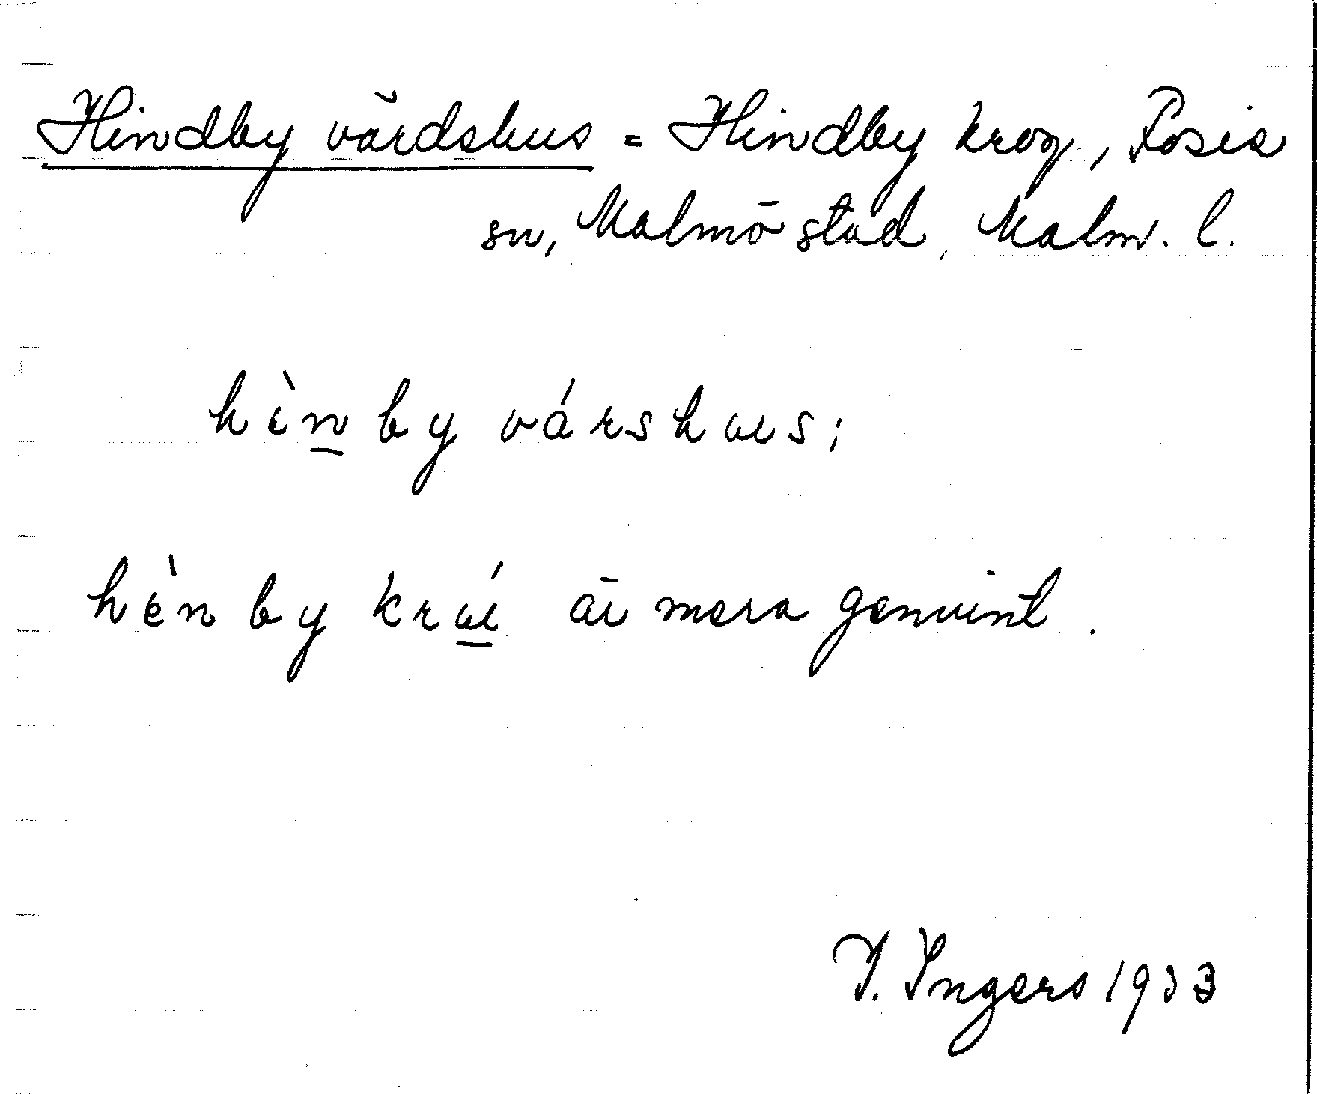 Hindby värdshus = Hindby krog, Fosie
sn, Malmö stad, Malm. l.
hìn̲by várshus;
hèn by kru̲í är mera genuint.
I. Ingers 1933